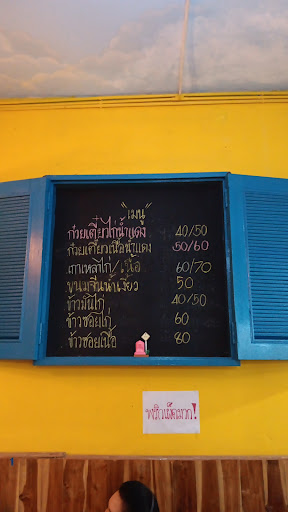 "เมนู"
ก๋วยเตี๋ยวไก่น้ำแดง 40/50
ก๋วยเตี๋ยวเนื้อน้ำแดง 50/60
เกาเหลาไก่/เนื้อ 60/70
ขนมจีนน้ำเงี้ยว 50
ข้าวมันไก่ 40/50
ข้าวซอยไก่ 60
ข้าวซอยเนื้อ 80
พริกเผ็ดมาก!